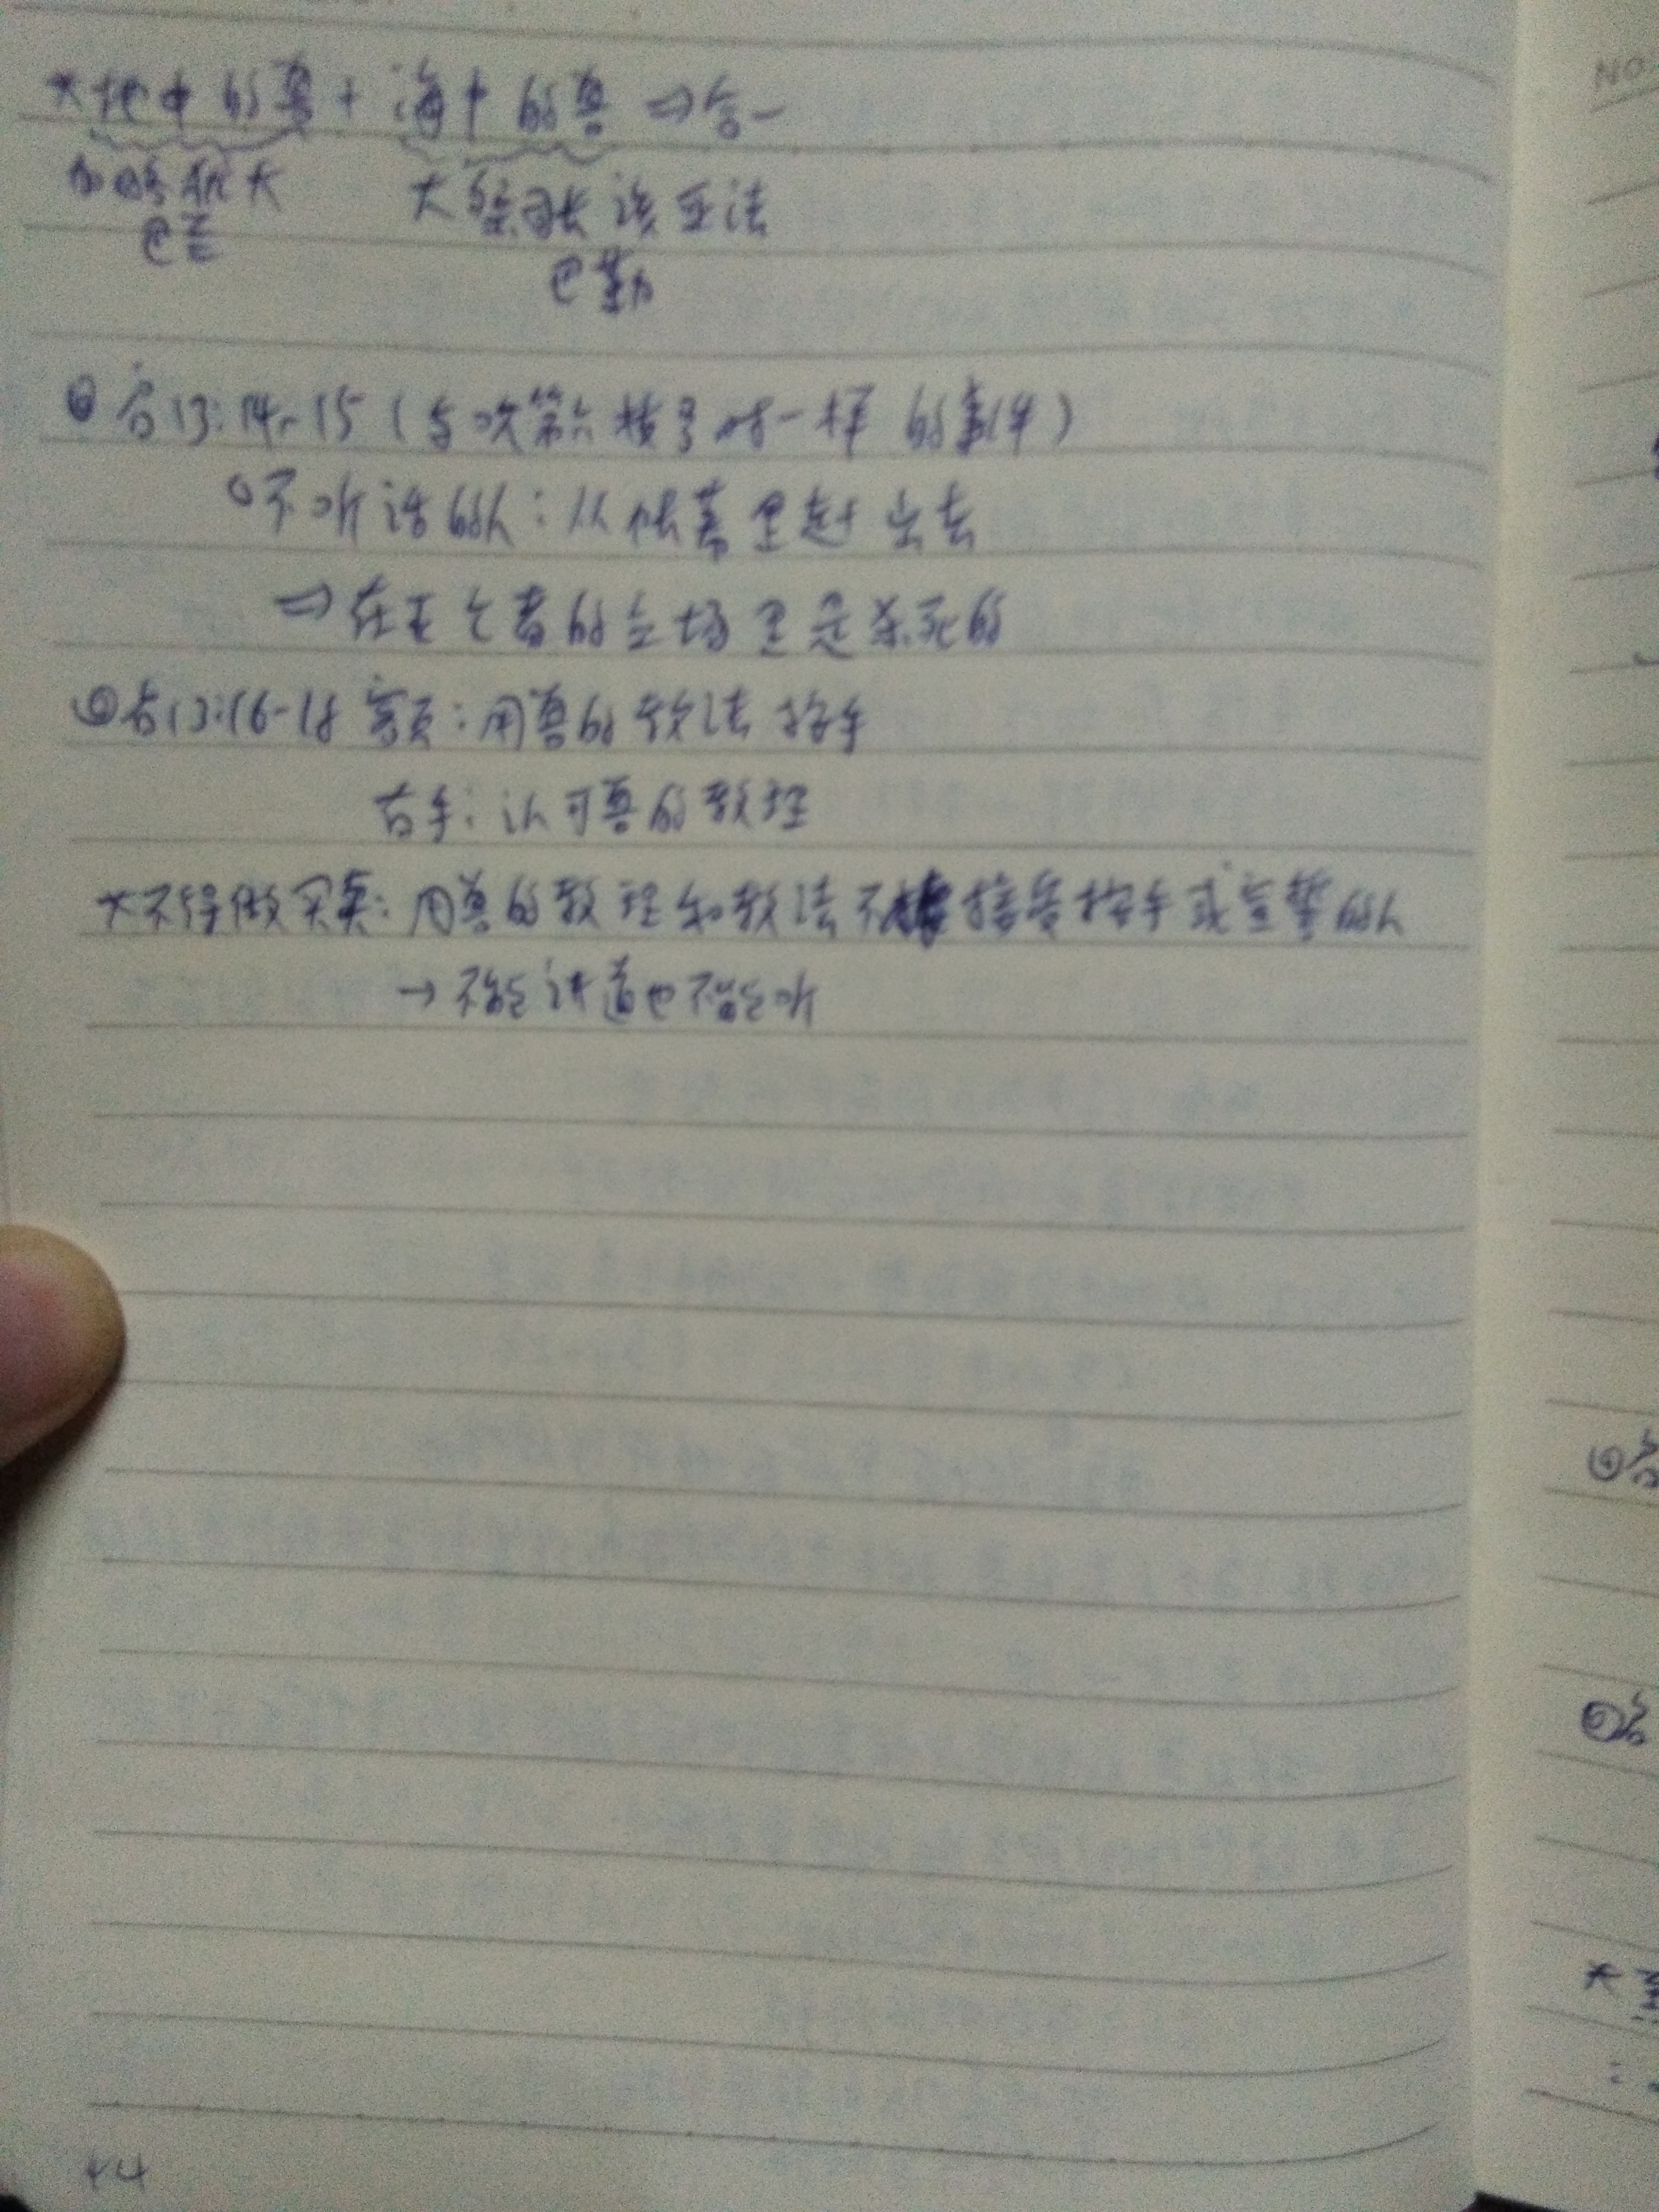 *地中的兽 + 海中的兽 ⇒ 合一
加略犹大 大祭司长该亚法
巴兰 巴勒
启13:14-15(与吹第六枝号时一样的事件)
不听话的人:从帐幕里赶出去
⇒在五个者的立场里是杀死的
启13:16-18 额页:用兽的教法按手
右手:认可兽的教理
*不得做买卖:用兽的教理和教法不接受按手或宣誓的人
→不能讲道也不能听
44
NO.